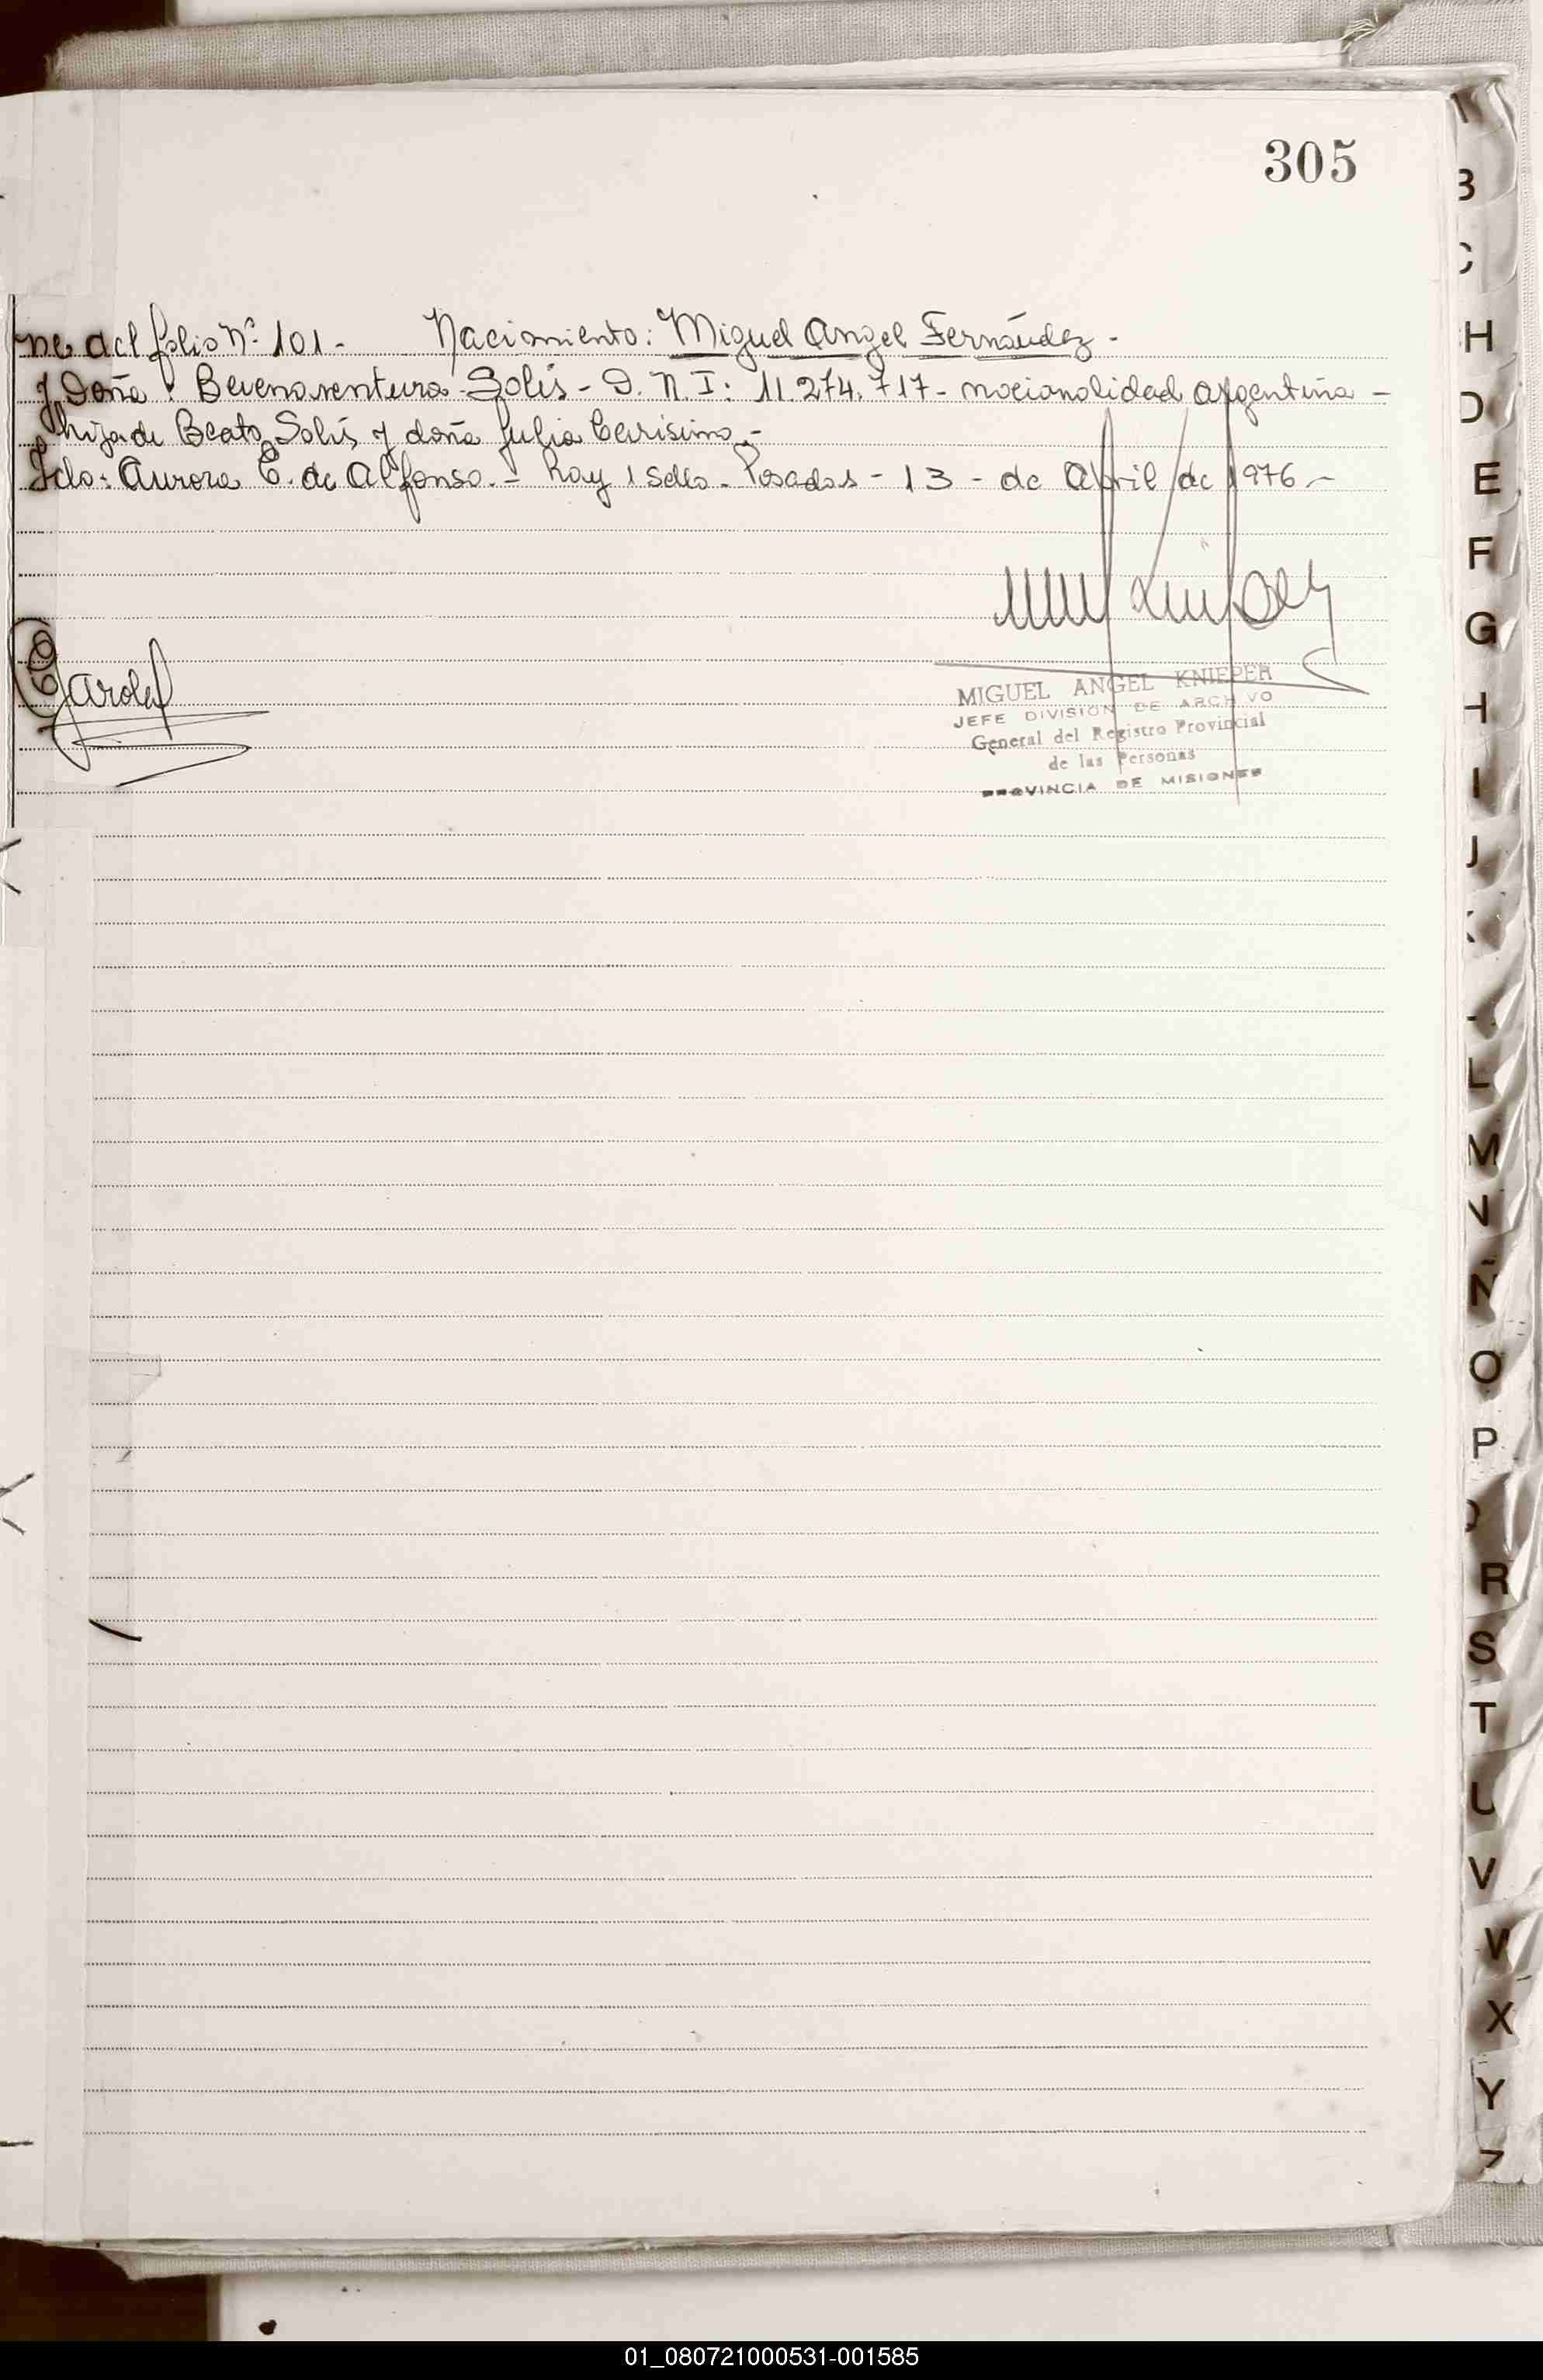 305
ne del folio Nº 101.- Nacimiento: Miguel Angel Fernández.-
y Doña: Buenaventura Solís - D.N.I: 11.274.717 - nacionalidad argentina -
hija de Beato Solís y doña Julia Cerísimo.-
Fdo: Aurora C. de Alfonso.- Hay 1 sello. Posadas - 13 - de Abril de 1976.-
MIGUEL ANGEL KNIEPER
JEFE DIVISION DE ARCHIVO
General del Registro Provincial
de las Personas
PROVINCIA DE MISIONES
B
C
H
D
E
F
G
H
I
J
L
M
N
Ñ
O
P
R
S
T
U
V
W
X
Y
Z
01_080721000531-001585